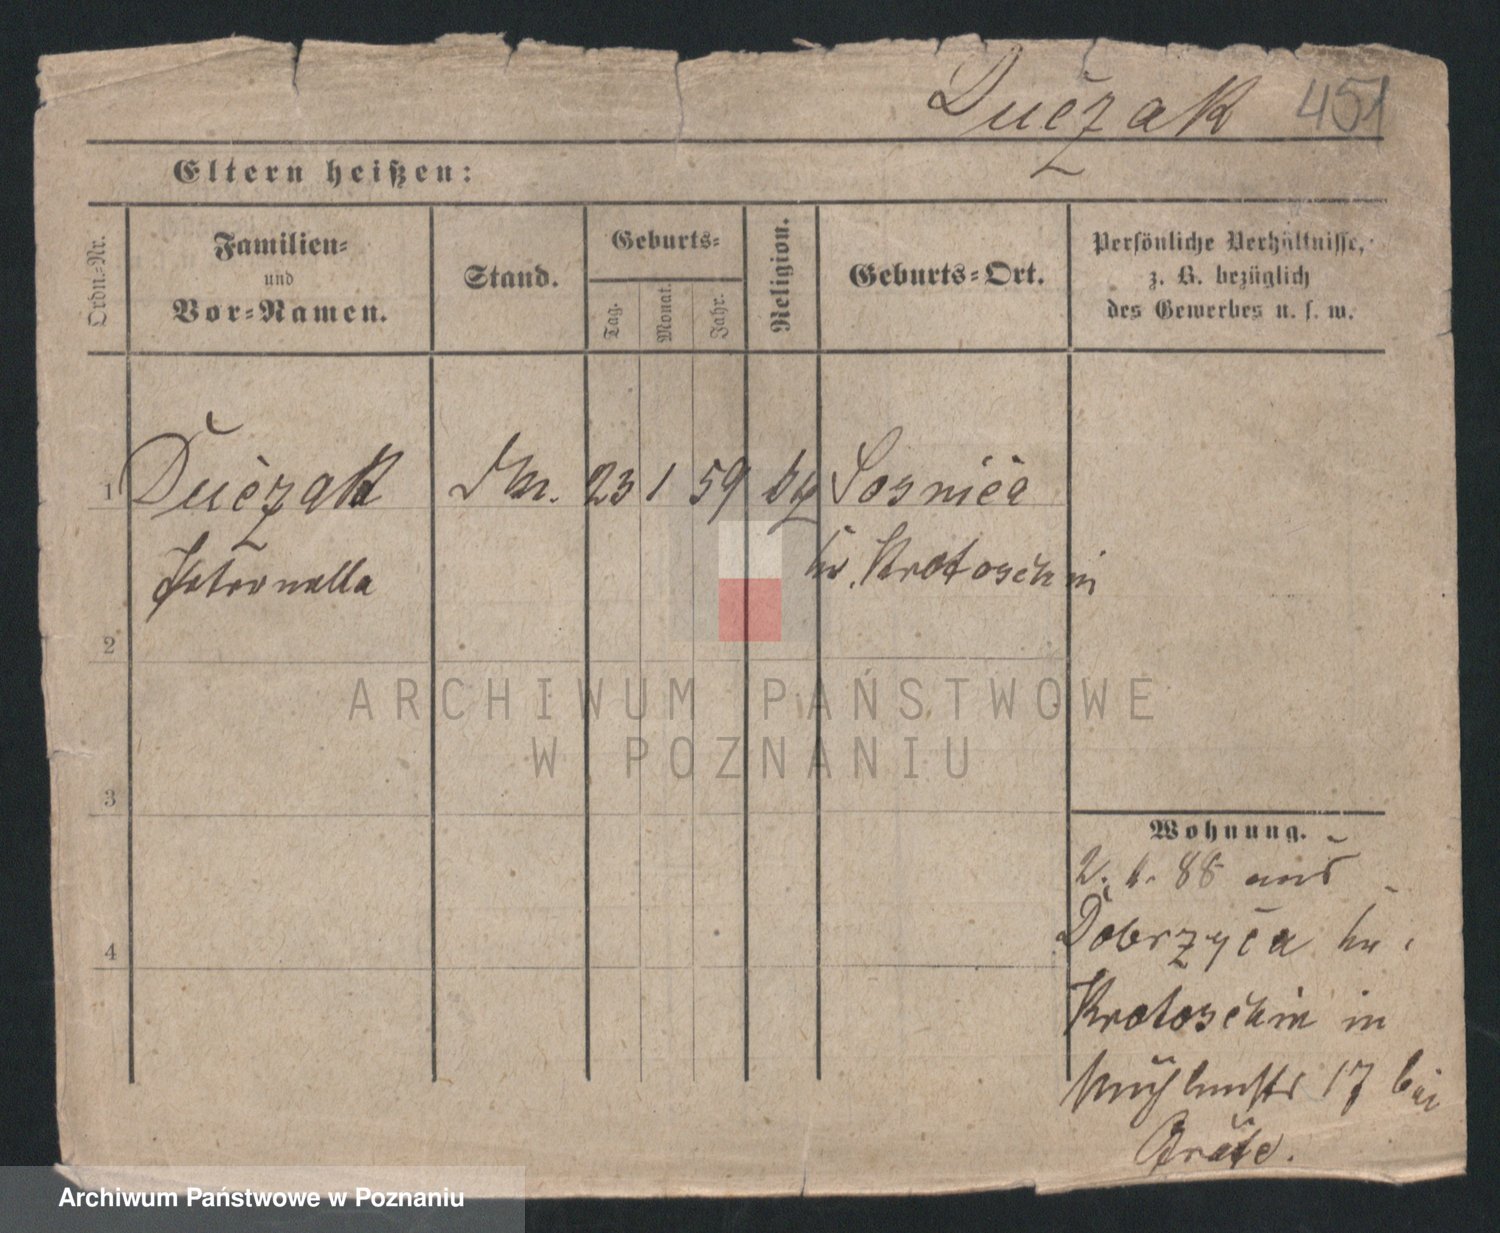 Duczak 451
Eltern heißen:
Ordn.-Nr.
Familien-
und
Vor-Namen.
Stand.
Geburts-
Tag.
Monat.
Jahr.
Religion.
Geburts-Ort.
Persönliche Verhältnisse,
z. B. bezüglich
des Gewerbes u. s. w.
1 Duczak 23 1 59 Sosnica
Petronella Kr. Krotoschin
2
3
4
Wohnung.
2. 88 aus
Dobrzyca Kr.
Krotoschin in
Mühlenstr 17 bei
ARCHIWUM PAŃSTWOWE
W POZNANIU
Archiwum Państwowe w Poznaniu